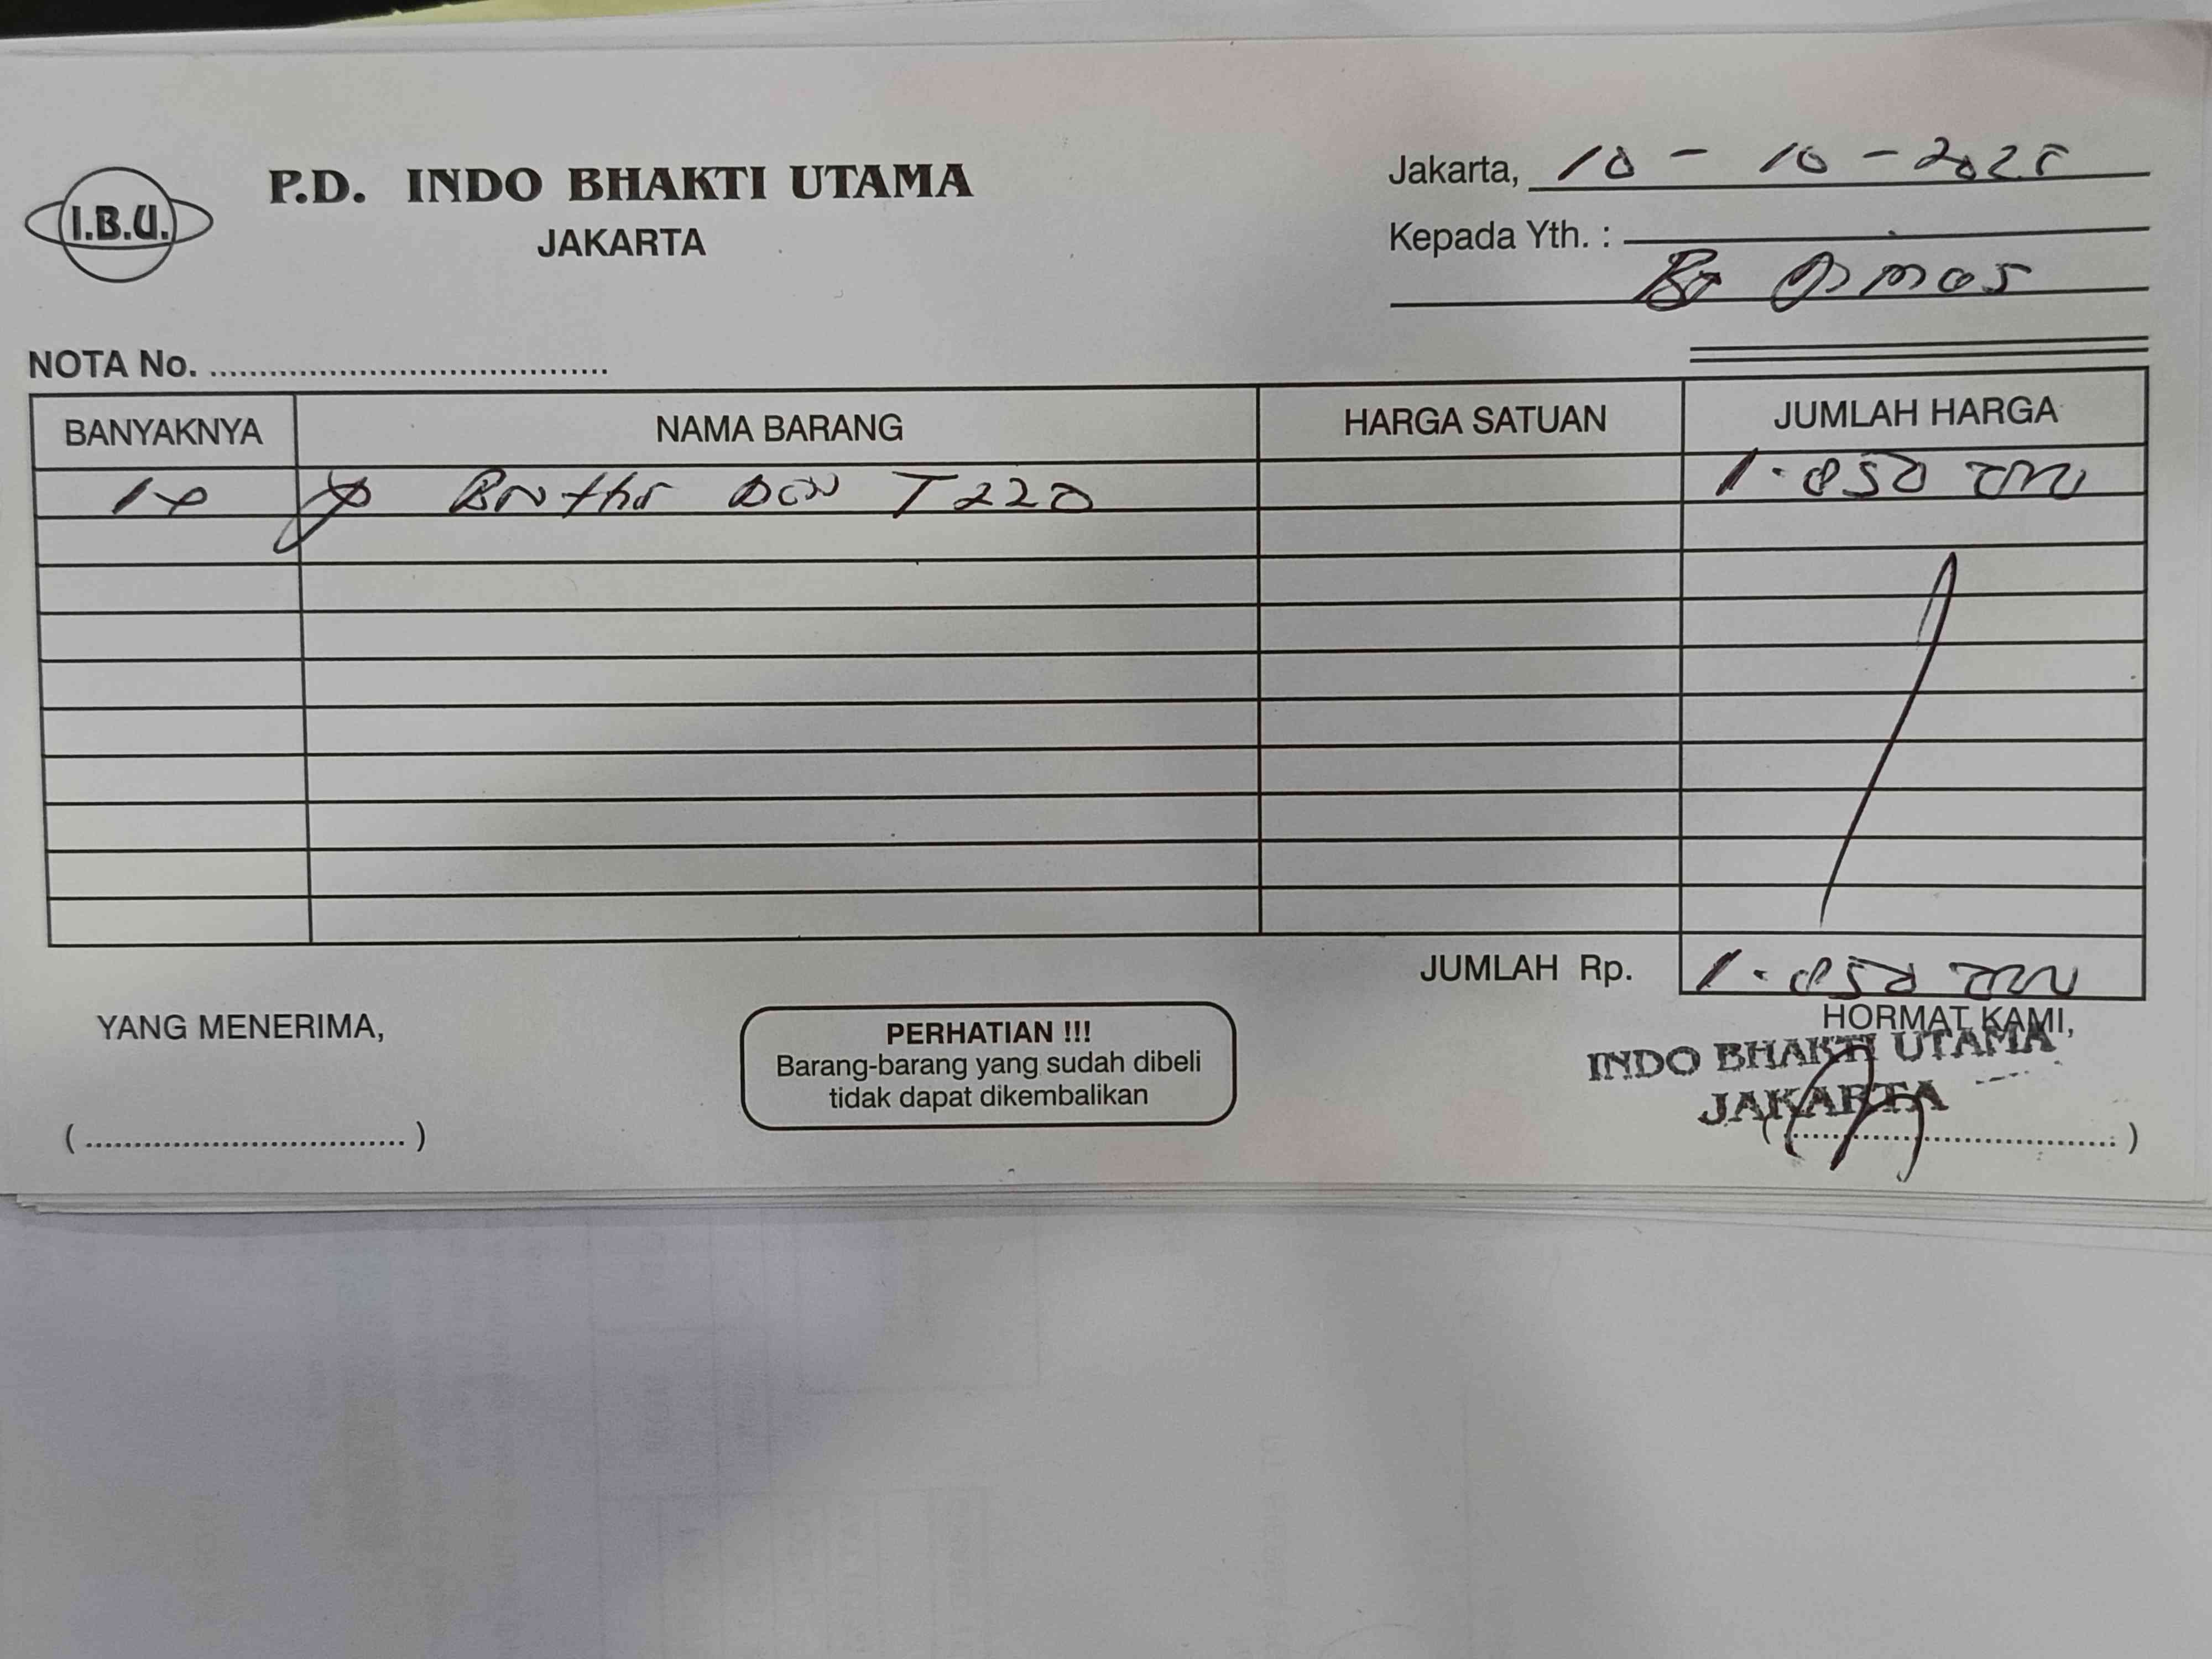 I.B.U.
P.D. INDO BHAKTI UTAMA
JAKARTA
Jakarta, 10 - 10 - 2025
Kepada Yth. :
NOTA No. ........................................
BANYAKNYA NAMA BARANG HARGA SATUAN JUMLAH HARGA
Brother DCP T220
JUMLAH Rp.
YANG MENERIMA,
(................................)
PERHATIAN !!!
Barang-barang yang sudah dibeli
tidak dapat dikembalikan
HORMAT KAMI,
INDO BHAKTI UTAMA
JAKARTA
(................................)